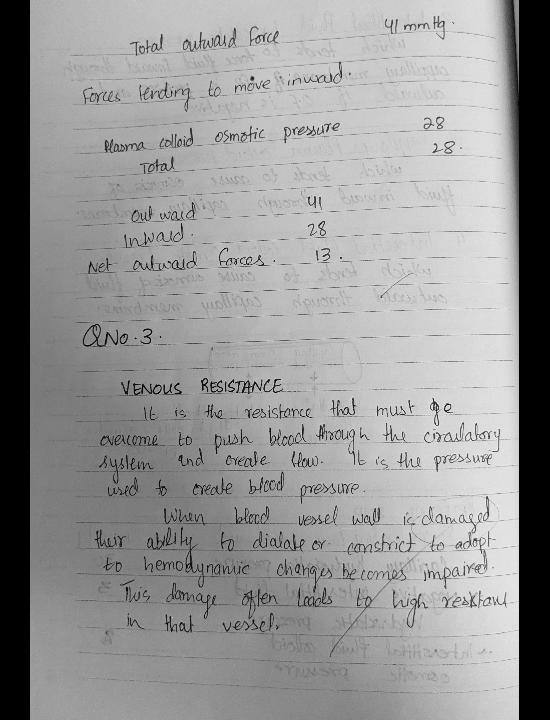 Total outward force 41 mmHg.
Forces tending to move inward.
Plasma colloid osmotic pressure 28
Total 28.
Outward 41
Inward. 28
Net outward forces. 13.
QNo.3.
VENOUS RESISTANCE
It is the resistance that must be
overcome to push blood through the circulatory
system and create flow. It is the pressure
used to create blood pressure.
When blood vessel wall is damaged
their ability to dialate or constrict to adopt
to hemodynamic changes becomes impaired.
This damage often leads to high resistant
in that vessel.